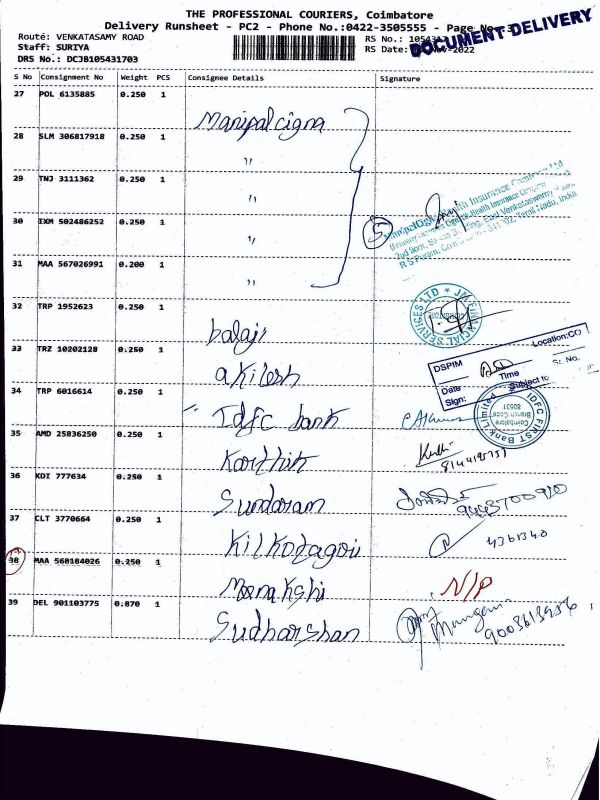 THE PROFESSIONAL COURIERS, Coimbatore
Delivery Runsheet - PC2 - Phone No.:0422-3505555 - Page No.
Route: VENKATASAMY ROAD
RS No.:
Staff: SURIYA
RS Date: 2022
DRS No.: DCJB105431703
DOCUMENT DELIVERY
S No Consignment No Weight PCS Consignee Details Signature
27 POL 6135885 0.250 1 Manipal cigna
28 SLM 306817918 0.250 1 "
29 TNJ 3111362 0.250 1 "
30 IXM 502486252 0.250 1 "
31 MAA 567026991 0.200 1 "
5
ManipalCigna Health Insurance Company Ltd
R S Puram, Tamil Nadu, India
32 TRP 1952623 0.250 1 balaji
JM FINANCIAL SERVICES LTD
33 TRZ 10202128 0.250 1 akilesh
DSPIM Location:CO
Date Time Sr. No.
Sign: Subject to
34 TRP 6016614 0.250 1 Idfc bank
IDFC FIRST Bank Limited
Coimbatore
Branch Code
80531
35 AMD 25836250 0.250 1 Karthik
36 KDI 777634 0.250 1 Sundaram
37 CLT 3770664 0.250 1 Kilkotagiri
4361340
38 MAA 568184026 0.250 1 Meenakshi N/P
39 DEL 901103775 0.870 1 Sudharshan